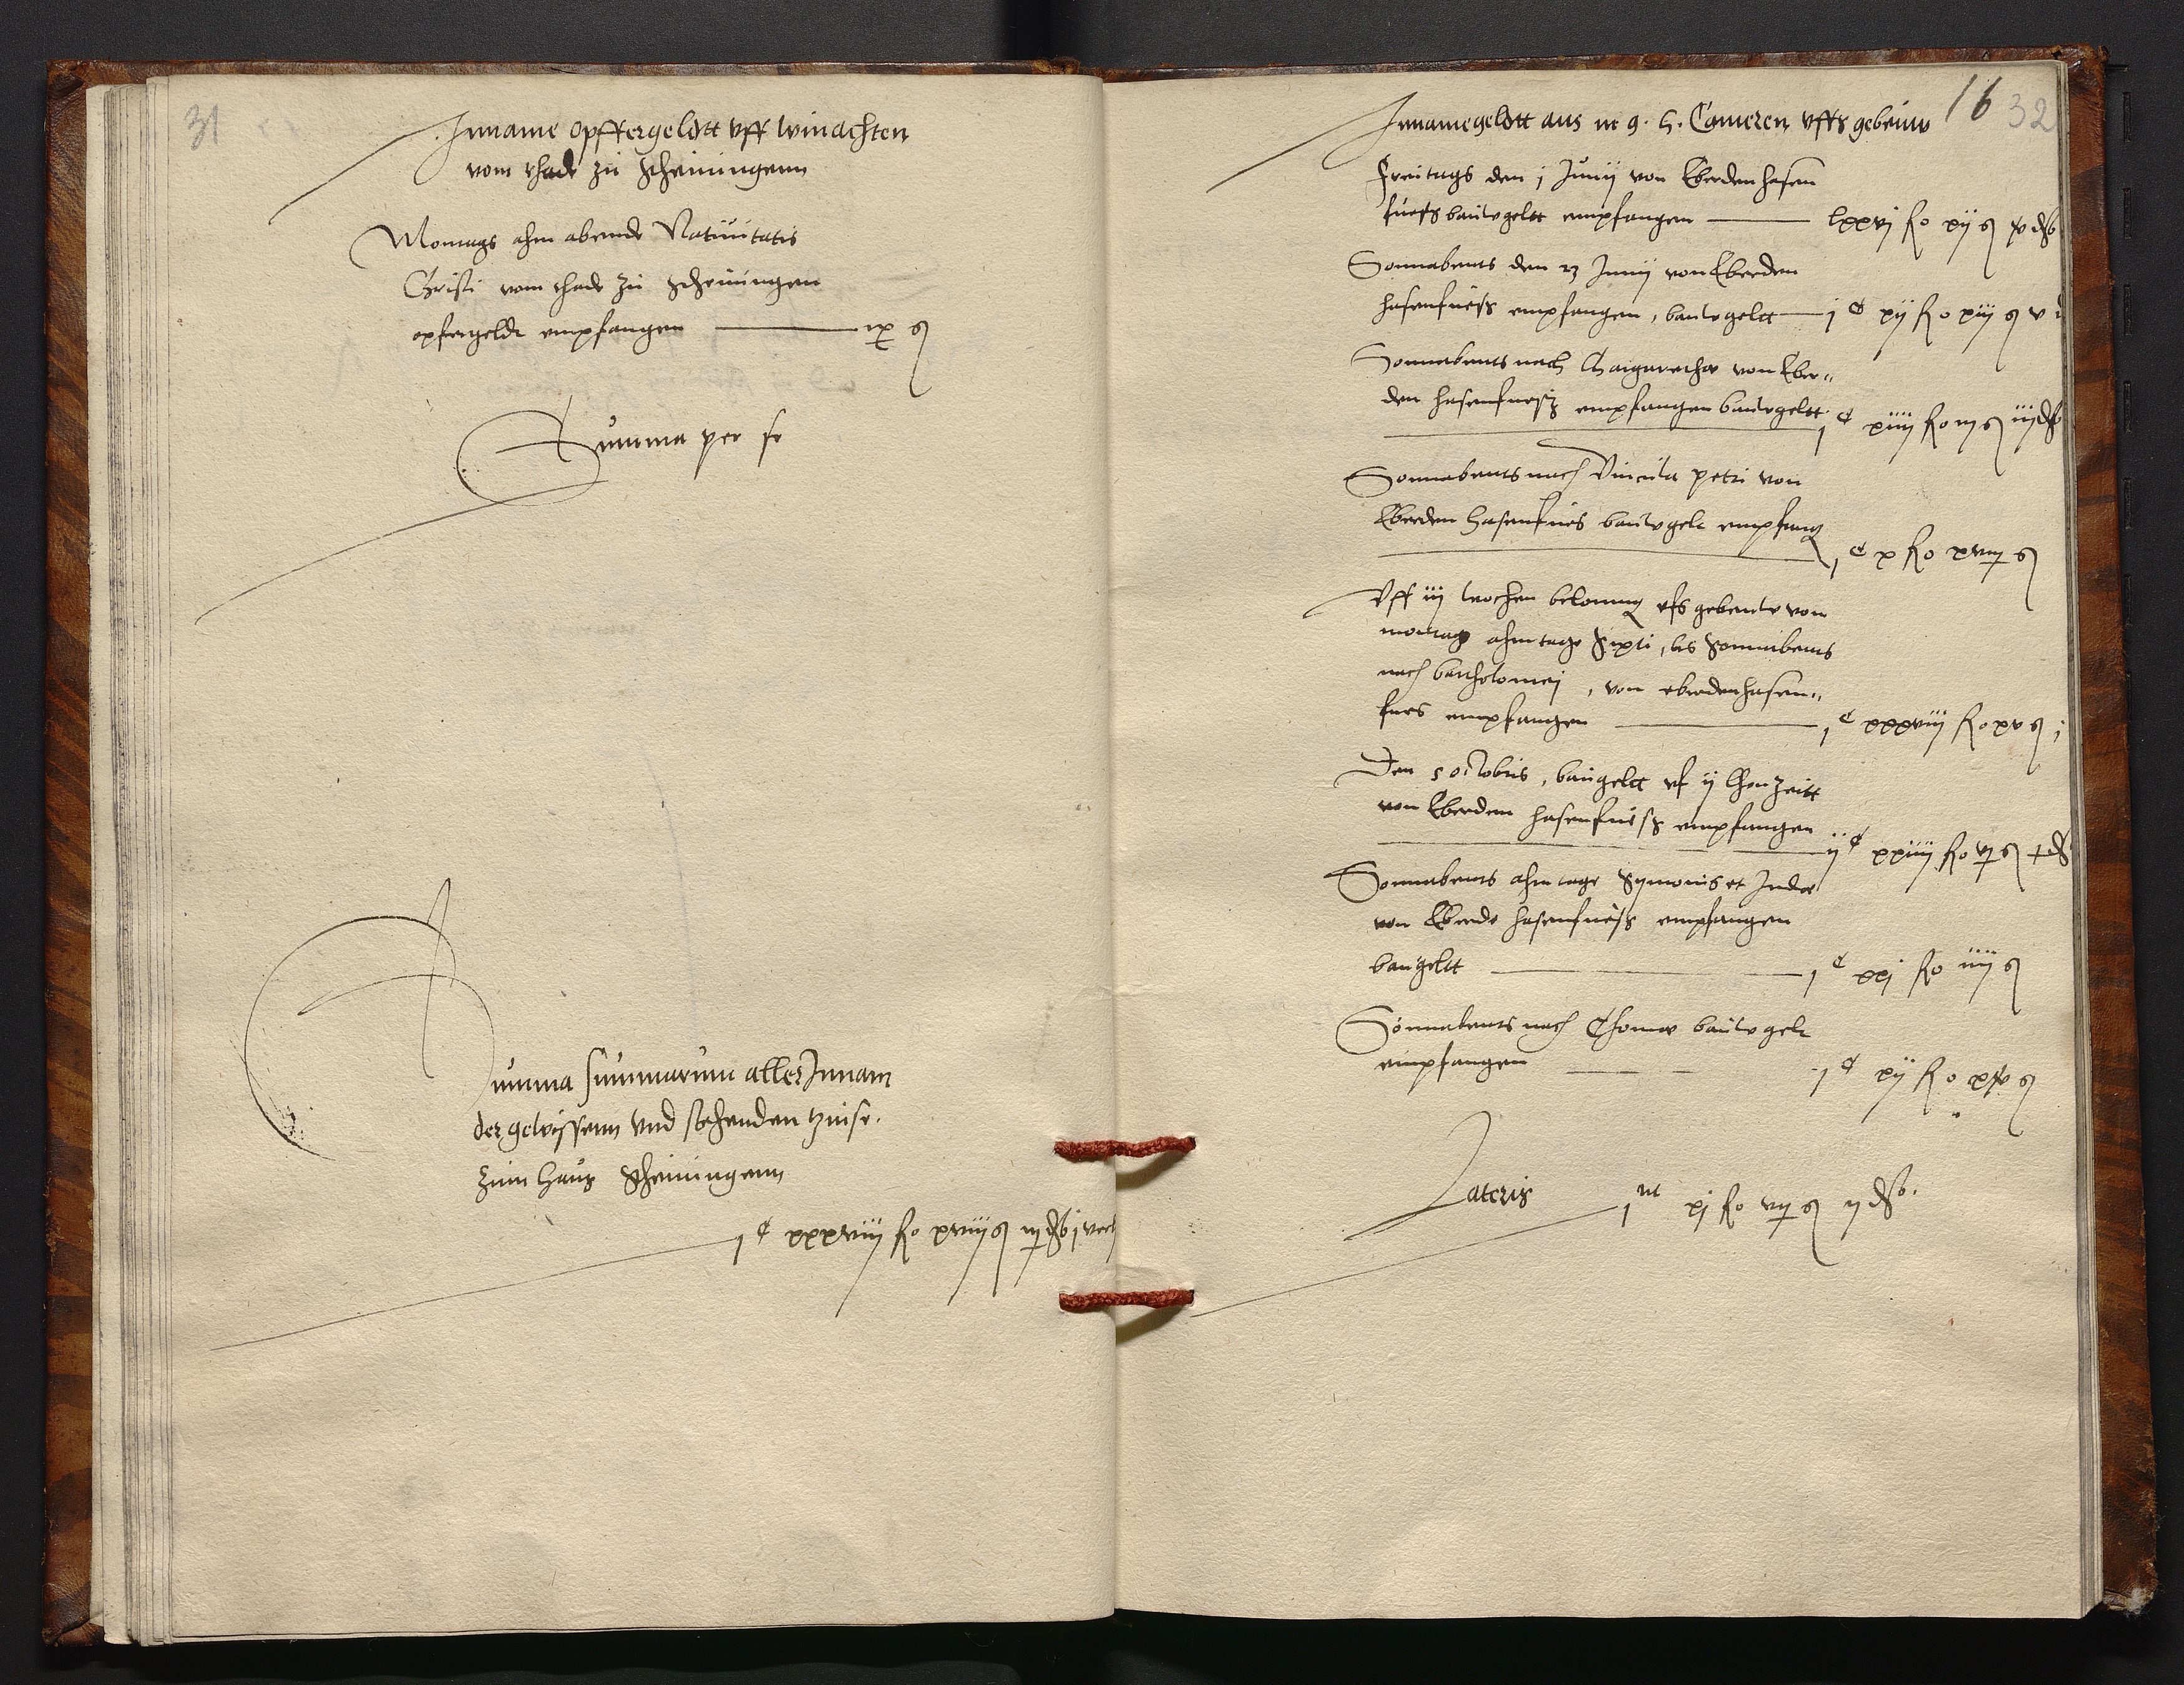 31
Inname opffergeldtt vff winachten
vom rhade zu Scheiningenn
Montags ahm abende Natiuitatis
Christi vom rhade zu Scheiningen
opfergeldt empfangen ix ß
Summa per se
Summa summarum aller Innam
der gewissenn vnd stehenden zinse.
zum Haus Scheiningenn
j c xxxviij fl xviij ß
16 32
Innamegeldtt aus m g. h. Cameren vffs gebeuw
Freitags den j Junij von Eberden hasen
fuess bauwgeltt empfangen lxxvj fl xij ß
Sonnabents den 23 Junij von Eberden
hasenfuess empfangen, bauwgeltt j c xij fl xiij ß v
Sonnabents nach Margarethe von Eber„
den hasenfuess empfangen bauwgeltt j c xiiij fl iij d
Sonnabents nach Vincula petri von
Eberden Hasenfues bauwgelt empfang
j c x fl xviij ß
Vff iij wochen belonung vfs gebeuw von
montag ahm tage Sixti, bis Sonnabents
nach bartholomej, von eberden hasen„
fues empfangen j c xxxviij fl xv ß j
Den 5 octobris, baugeltt vf ij lhonzeitt
von Eberden hasenfuess empfangen
ij c xxiiij fl
Sonnabents ahm tage Symonis et Jude
von Eberde hasenfuess empfangen
baugeltt j c xxj fl iiij ß
Sonnabents nach Thome bauwgelt
empfangen j c xij fl
Lateris j m xj fl vij ß ij d